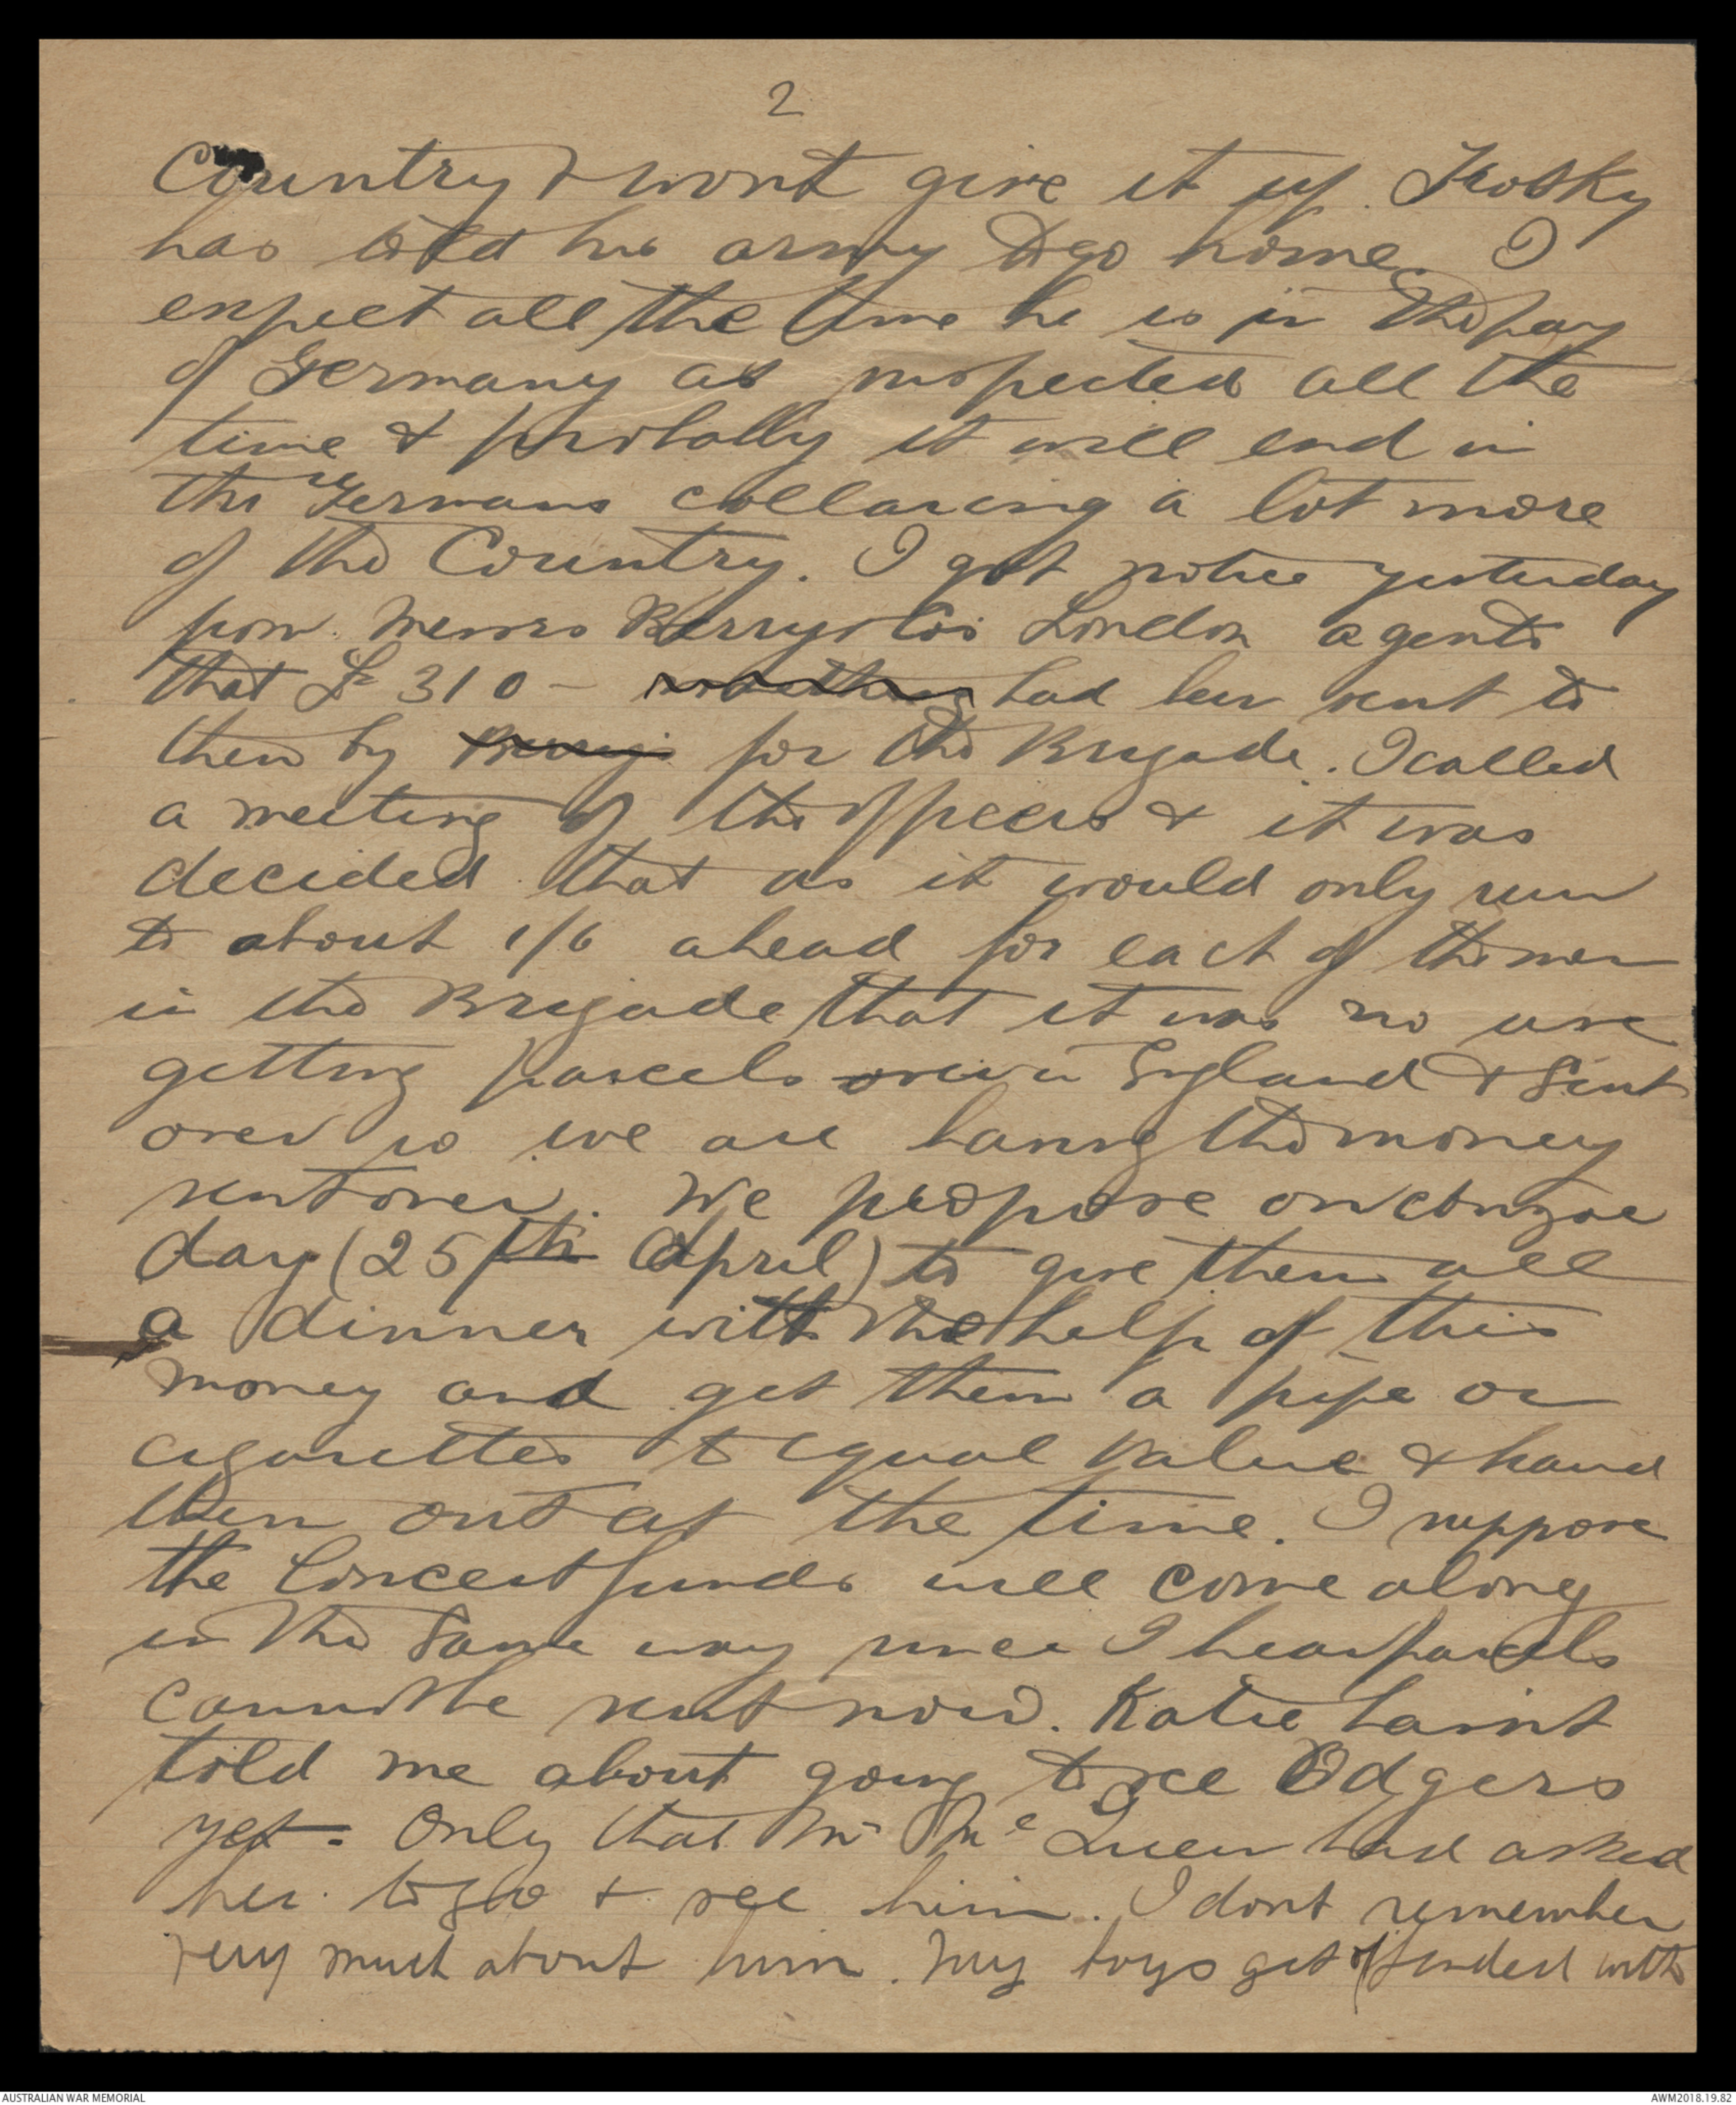 2
Country & wont give it up. Trotsky
has told his army to go home. I
expect all the time he is in the pay
of Germany as suspected all the
time & probably it will end in
the Germans collaring a lot more
of the Country. I got notice yesterday
from Messrs Berrys & Cos London agents
that £310 - had been sent to
them by for the Brigade. I called
a meeting of the officers & it was
decided that as it would only run
to about 1/6 ahead for each of the men
in the Brigade that it was no use
getting parcels in England & Sent
over so we are having the money
sent over. We propose on anzac
day (25th April) to give them all
a dinner with the help of this
money and get them a pipe or
cigarettes to equal value & hand
them out at the time. I suppose
the Concert funds will come along
in the Same way since I hear parcels
cannot be sent now. Katie hasnt
told me about going to see Odgers
yet - Only that Mr McQueen had asked
her to go & see him. I dont remember
very much about him. My boys get offended with
AUSTRALIAN WAR MEMORIAL
AWM2018.19.82